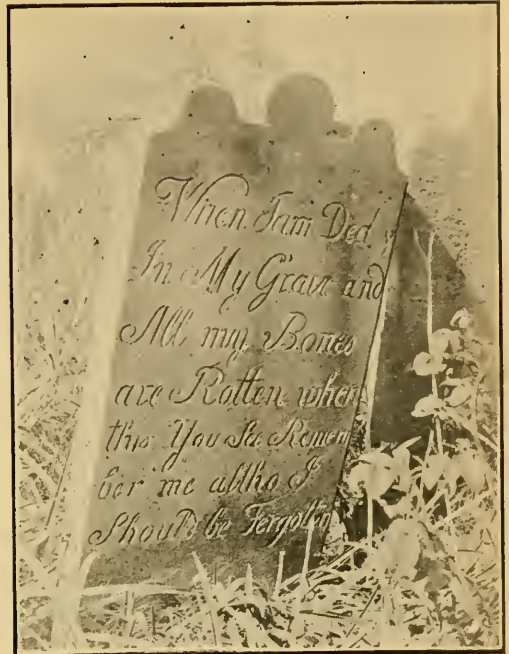 When I am Ded
In My Grave and
All my Bones
are Rotten when
this You See Remem
ber me altho I
Should be Fergoten